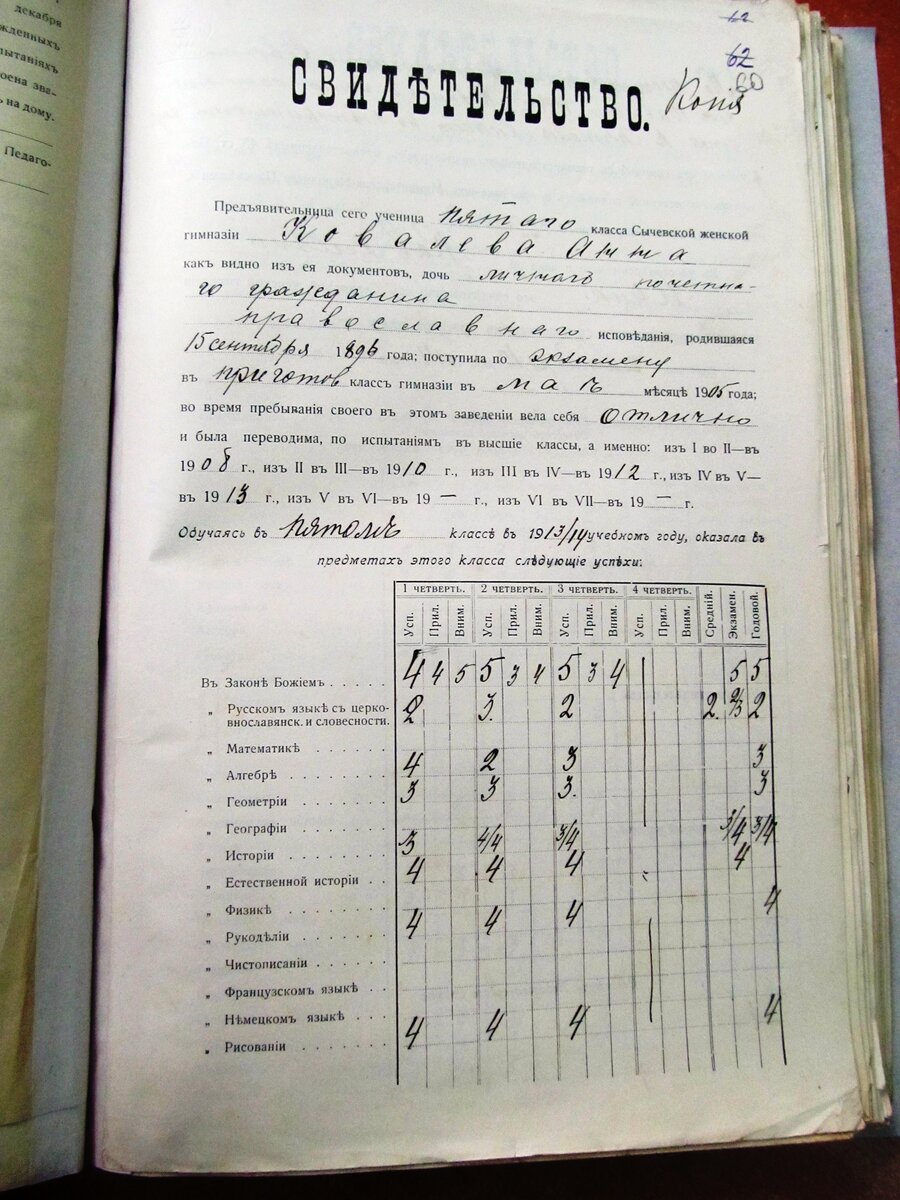 декабря
жденныхъ
пытанiяхъ
оена зва-
ь на дому.
Педаго-
62
62
60
СВИДѢТЕЛЬСТВО.
Копiя
Предъявительница сего ученица пятаго класса Сычевской женской
гимназiи Ковалева Анна
какъ видно изъ ея документовъ, дочь личнаго почетна-
го гражданина
православнаго исповѣданiя, родившаяся
15 сентября 1896 года; поступила по экзамену
въ приготов классъ гимназiи въ маѣ мѣсяцѣ 1905 года;
во время пребыванiя своего въ этомъ заведенiи вела себя отлично
и была переводима, по испытанiямъ въ высшiе классы, а именно: изъ I во II—въ
1908 г., изъ II въ III—въ 1910 г., изъ III въ IV—въ 1912 г., изъ IV въ V—
въ 1913 г., изъ V въ VI—въ 19 — г., изъ VI въ VII—въ 19 — г.
Обучаясь въ пятомъ классѣ въ 1913/14 учебномъ году, оказала въ
предметахъ этого класса слѣдующiе успѣхи:
1 ЧЕТВЕРТЬ. 2 ЧЕТВЕРТЬ. 3 ЧЕТВЕРТЬ. 4 ЧЕТВЕРТЬ.
Усп. Прил. Вним. Усп. Прил. Вним. Усп. Прил. Вним. Усп. Прил. Вним. Среднiй. Экзамен. Годовой.
Въ Законѣ Божiемъ . . . . . 4 4 5 5 3 4 5 3 4 5 5
„ Русскомъ языкѣ съ церко-
внославянск. и словесности. 2 3. 2 2. 2/3 2
„ Математикѣ . . . . . .
„ Алгебрѣ . . . . . . . 4 2 3 3
„ Геометрiи . . . . . . 3 3 3. 3
„ Географiи . . . . . .
„ Исторiи . . . . . . . 3 4/4 3/4 3/4 3/4
„ Естественной исторiи . . 4 4 4 4
„ Физикѣ . . . . . . .
„ Рукодѣлiи . . . . . . 4 4 4 4
„ Чистописанiи . . . . .
„ Французскомъ языкѣ . .
„ Нѣмецкомъ языкѣ . . .
„ Рисованiи . . . . . . 4 4 4 4